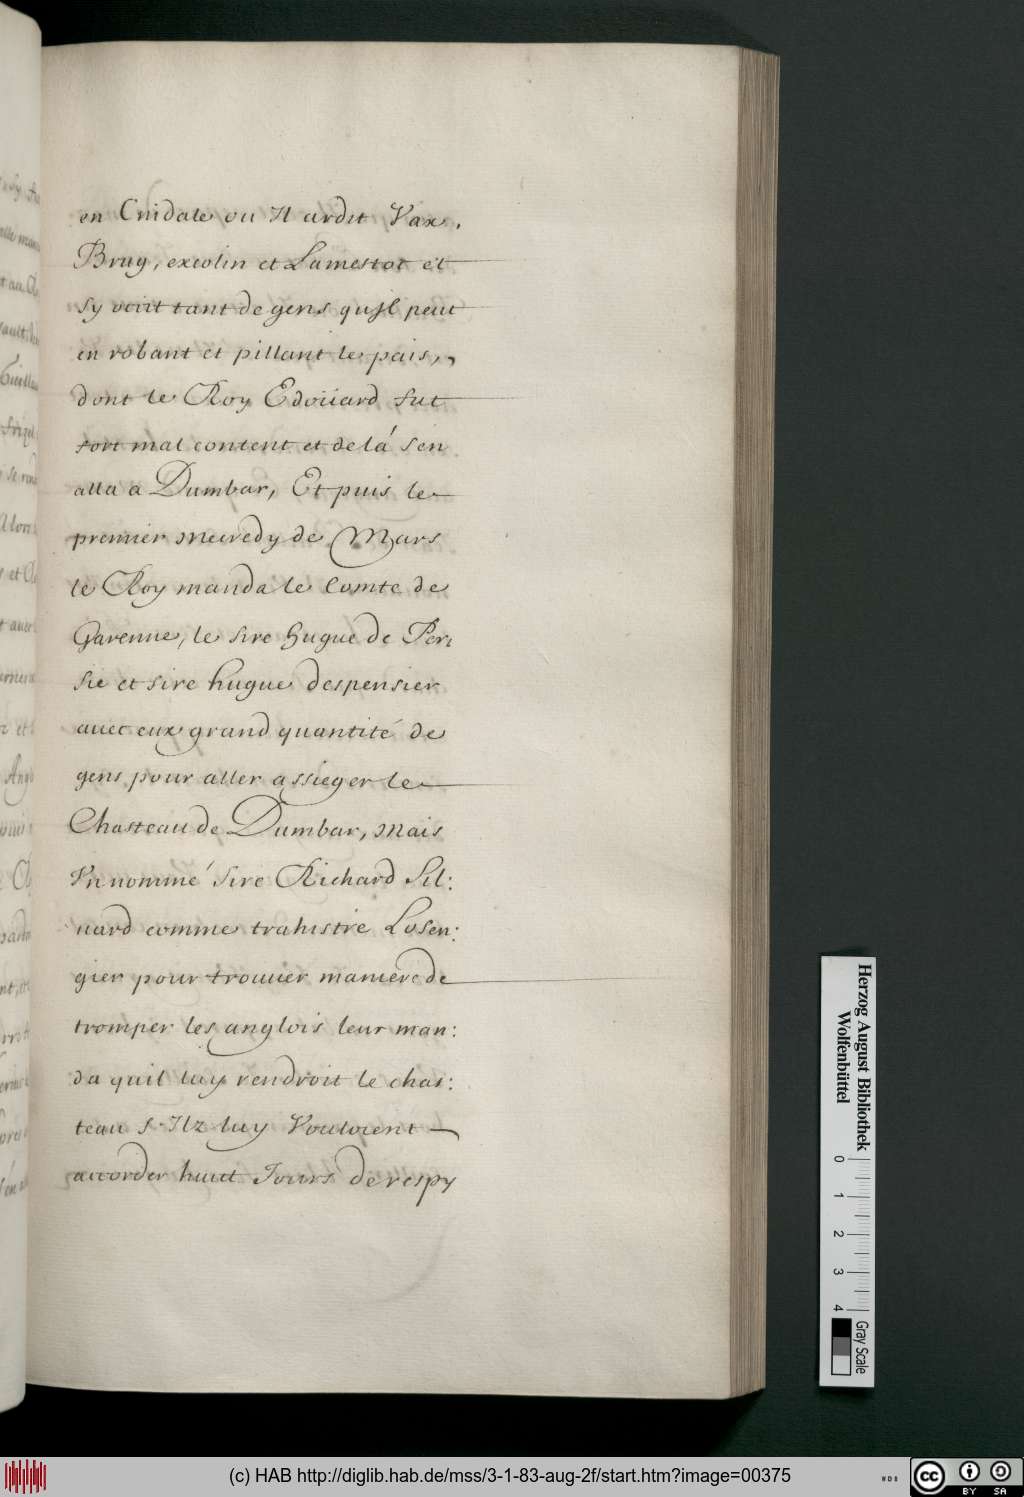 en Cnidale ou Il ardit Vax.
Bruy, excolin et Lamestot et
sy ociit tant de gens quJl peut
en robant et pillant le pais,,
dont le Roy Edoüard fut
fort mal content et de lá s'en
alla a Dumbar, Et puis le
premier mecredy de Mars
le Roy manda le Comte de
Garenne, le sire hugue de Per:
sie et sire hugue despensier
auec eux grand quantité de
gens pour aller assieger le
Chasteau de Dumbar, mais
Vn nommé sire Richard Sil:
uard comme trahistre Losen:
gier pour trouuer maniere de
tromper les anglois leur man:
da quil luy rendroit le chas:
teau s'Ilz luy Vouloient
accorder huict Jours de respy
Herzog August Bibliothek
Wolfenbüttel
0 1 2 3 4
Gray Scale
(c) HAB http://diglib.hab.de/mss/3-1-83-aug-2f/start.htm?image=00375
cc BY SA